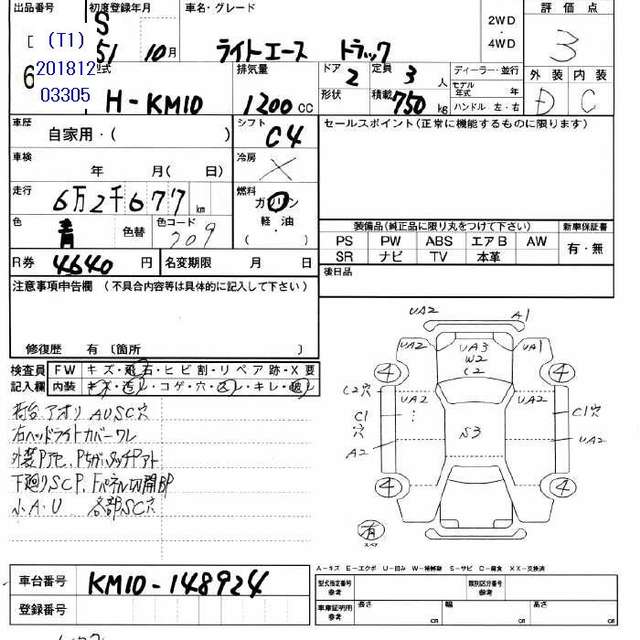 出品番号 初度登録年月 車名・グレード 2WD 評価点
S 51 10月 ライトエース トラック ・4WD 3
(T1)
201812
03305
6 型式 排気量 ドア 定員 ディーラー・並行 外装 内装
H-KM10 1200cc 2 3人 モデル年式 年 D C
形状 積載 750kg ハンドル 左・右
車歴 自家用・( ) シフト C4 セールスポイント(正常に機能するものに限ります)
車検 年 月(日) 冷房 ×
走行 6万2千677km 燃料 ガソリン
軽・油
( )
色 青 色替 色コード 709
装備品(純正品に限り丸をつけて下さい) 新車保証書
PS PW ABS エアB AW 有・無
SR ナビ TV 本革
R券 4640円 名変期限 月 日 後日品
注意事項申告欄 (不具合内容等は具体的に記入して下さい)
修復歴 有〔箇所 〕
検査員 FW キズ・飛石・ヒビ割・リペア跡・X要
記入欄 内装 キズ・汚レ・コゲ・穴・スレ・キレ・破レ
荷台アオリ AUSC穴
右ヘッドライトカバーワレ
下廻りSCP、
小A・U 各部SC穴
UA2 A1
UA2 UA3 UA1
W2
C2
4 4
C2穴 UA2 UA2
C1穴 C1穴
A2 S3 UA2
4 4
有
スペア
A-キズ E-エクボ U-凹み W-補修跡 S-サビ C-腐食 XX-交換済
車台番号 KM10-148924
登録番号
型式指定番号 参考 類別区分番号 参考
車庫証明用 参考 長さ cm 幅 cm 高さ cm